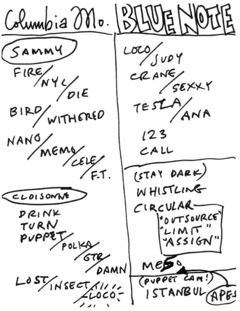 Columbia Mo.
SAMMY
FIRE/
NYC/
DIE
BIRD/
WITHERED
NANO/
MEMO/
CELE/
F.T.
CLOISONNE
DRINK
TURN
PUPPET/
POLKA/
GTR/
DAMN
LOST/
INSECT/
LOCO
BLUE NOTE
LOCO/
JUDY
CRANE/
SEXXY
TESLA/
ANA
123
CALL
(STAY DARK)
WHISTLING
CIRCULAR
"OUTSOURCE"
"LIMIT"
"ASSIGN"
MESO
(PUPPET CAM!)
ISTANBUL
APES